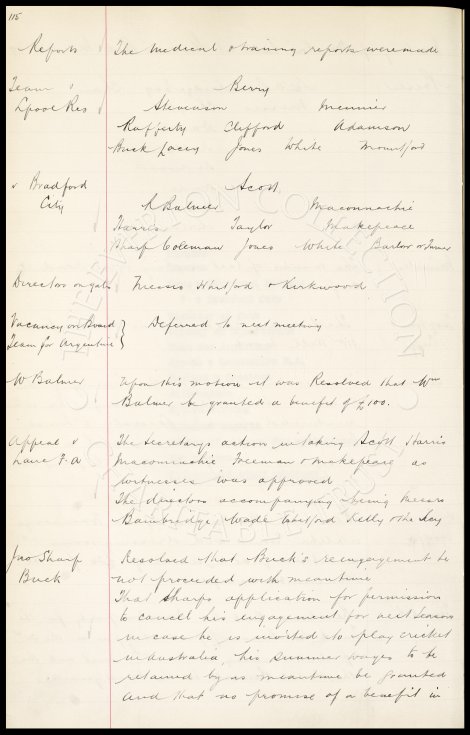 115
Reports The Medical & training reports were made
Team v Berry
Lpool Res Stevenson Meunier
Rafferty Clifford Adamson
Buck Lacey Jones White Mountford
v Bradford Scott
City R Balmer Maconnachie
Harris Taylor Makepeace
Sharp Coleman Jones White Barlow or Turner
Directors on gates Messrs Whitford & Kirkwood
Vacancy on Board } Deferred to next meeting
Team for Argentine }
W Balmer Upon this motion it was Resolved that Wm
Balmer be granted a benefit of £100.
Appeal v The Secretarys action in taking Scott Harris
Lanc F.A Maconnachie Freeman & Makepeace as
witnesses was approved
The directors accompanying being Messrs
Bainbridge, Wade Whitford Kelly & the Secy
Jno Sharp Resolved that Buck's reengagement be
Buck not proceeded with meantime
That Sharps application for permission
to cancel his engagement for next Season
in case he is invited to play cricket
in Australia, his summer wages to be
retained by us meantime be granted
and that no promise of a benefit in
THE EVERTON COLLECTION
CHARITABLE TRUST